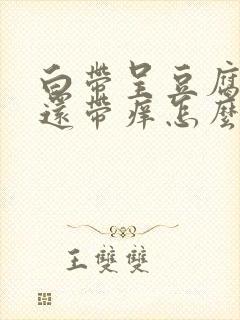 白带呈豆腐
還帶痒怎麼
王雙雙